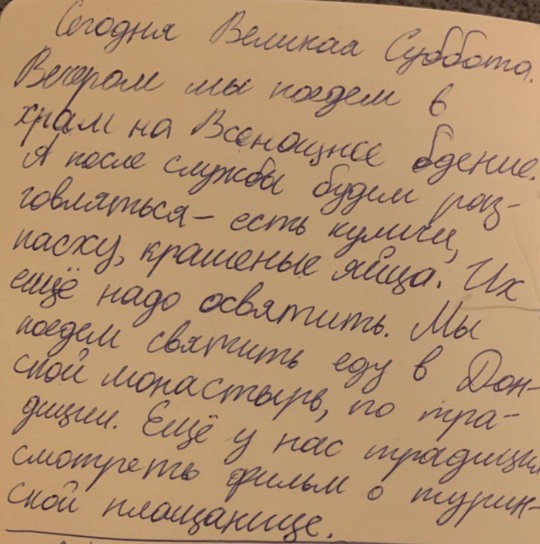 Сегодня Великая Суббота.
Вечером мы поедем в
храм на Всенощное бдение.
А после службы будем раз-
говляться – есть куличи,
пасху, крашеные яйца. Их
ещё надо освятить. Мы
поедем святить еду в Дон-
ской монастырь, по тра-
диции. Ещё у нас традиция
смотреть фильм о турин-
ской плащанице.